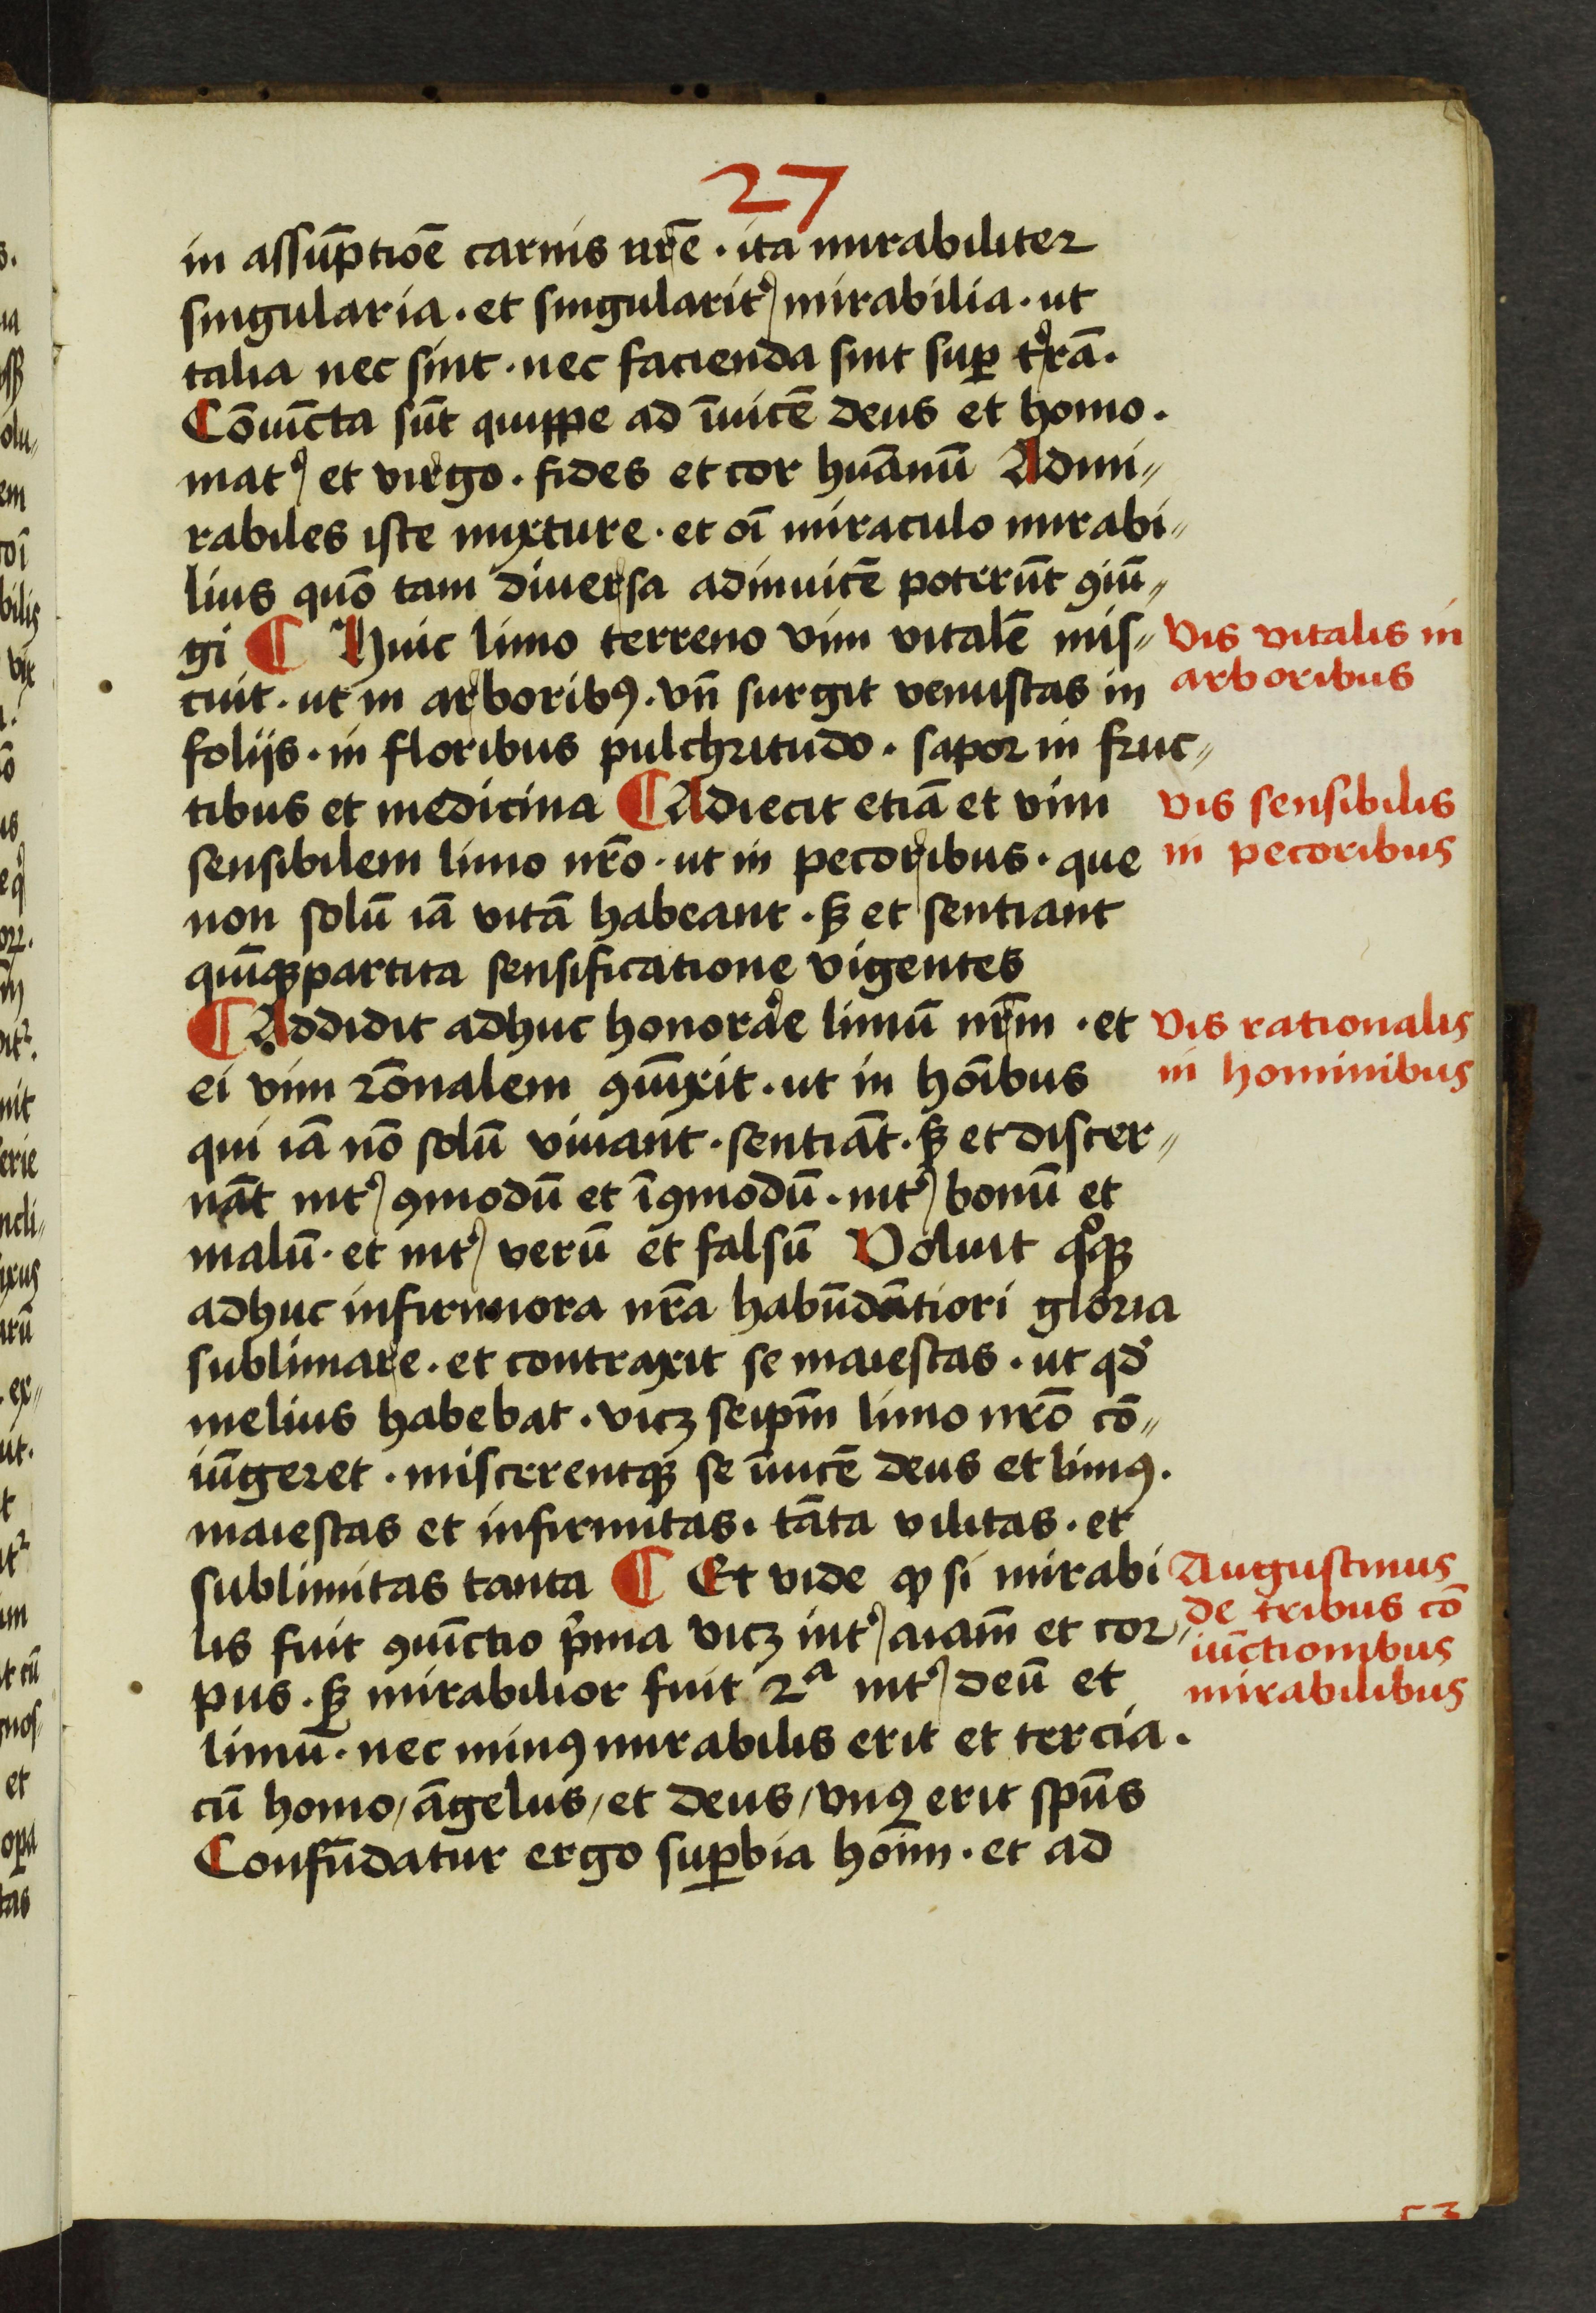 27
in assūptiōe carnis nr̄e · ita mirabiliter
singularia · et singularit᷒ mirabilia · ut
talia nec sint · nec facienda sint suꝑ t᷒rā ·
Cōiūcta sūt quippe ad īuicē deus et homo ·
mat᷒ et virgo · fides et cor hūanū Admi〃
rabiles iste mixture · et oī miraculo mirabi〃
lius quō tam diuersa adinuicē poterūt ꝯiū〃
gi ¶ Huic limo terreno vim vitalē mis〃
cuit · ut in arboribꝰ · vn̄ surgit venustas in
folijs · in floribus pulchritudo · sapor in fruc〃
tibus et medicina ¶ Adiecit etiā et vim
sensibilem limo nr̄o · ut in pecoribus · que
non solū iā vitā habeant · sꝫ et sentiant
quīqꝫpartita sensificatione vigentes
¶ Addidit adhuc honorare limū nr̄m · et
ei vim rōnalem ꝯiūxit · ut in hōibus
qui iā nō solū viuant · sentiāt · sꝫ et discer〃
nāt int᷒ ꝯmodū et īꝯmodū · int᷒ bonū et
malū · et int᷒ verū et falsū Voluit qͦqꝫ
adhuc infirmiora nr̄a habūdātiori gloria
sublimare · et contraxit se maiestas · ut qd̓
melius habebat · vicꝫ seip̄m limo nr̄o cō〃
iūgeret · miscerentqꝫ se īuicē deus et limꝰ ·
maiestas et infirmitas · tāta vilitas · et
sublimitas tanta ¶ Et vide ꝙ si mirabi
lis fuit ꝯiūctio p̄ma vicꝫ int᷒ aīam et cor〃
pus · sꝫ mirabilior fuit 2ᵃ int᷒ deū et
limū · nec minꝰ mirabilis erit et tercia ·
cū homo / āgelus / et deus / vnꝰ erit sp̄us
Confūdatur ergo suꝑbia hoīm · et ad
Vis vitalis in
arboribus
vis sensibilis
in pecoribus
Vis rationalis
in hominibus
Augustinus
de tribus cō
iūctionibus
mirabilibus